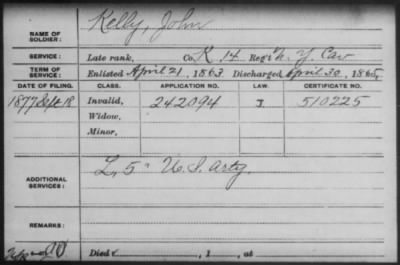 Kelly, John
NAME OF SOLDIER:
SERVICE: Late rank, Co. K 14 Reg't N. Y. Cav
TERM OF SERVICE: Enlisted April 21, 1863 Discharged April 30, 1865,
DATE OF FILING. CLASS. APPLICATION NO. LAW. CERTIFICATE NO.
1877 Sept. 18 Invalid, 242094 J 510225
Widow,
Minor,
L, 5" U. S. Arty.
ADDITIONAL SERVICES:
REMARKS:
Died , 1 , at